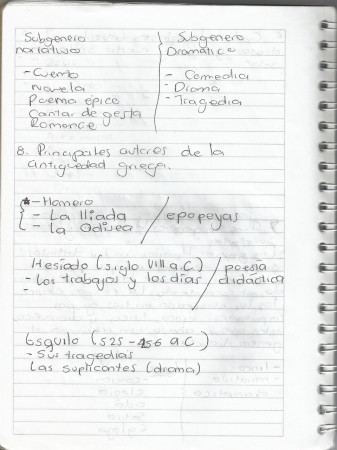 Subgenero narrativo
- Cuento
Novela
Poema épico
Cantar de gesta
Romance
Subgenero Dramático
- Comedia
- Drama
- Tragedia
8. Principales autores de la
antigüedad griega.
- Homero
- La Iliada
- La Odisea
epopeyas
Hesiado (siglo VIII a.C.)
- Los trabajos y los días
-
poesía
didáctica
Esquilo (525-456 a.C)
- Sus tragedias
Las suplicantes (drama)